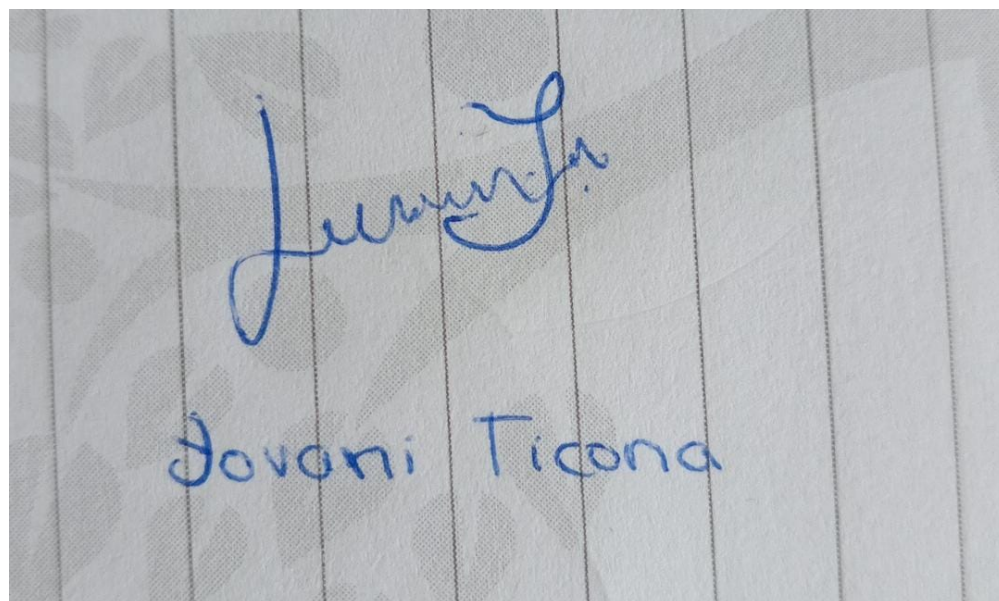 Jovani Ticona